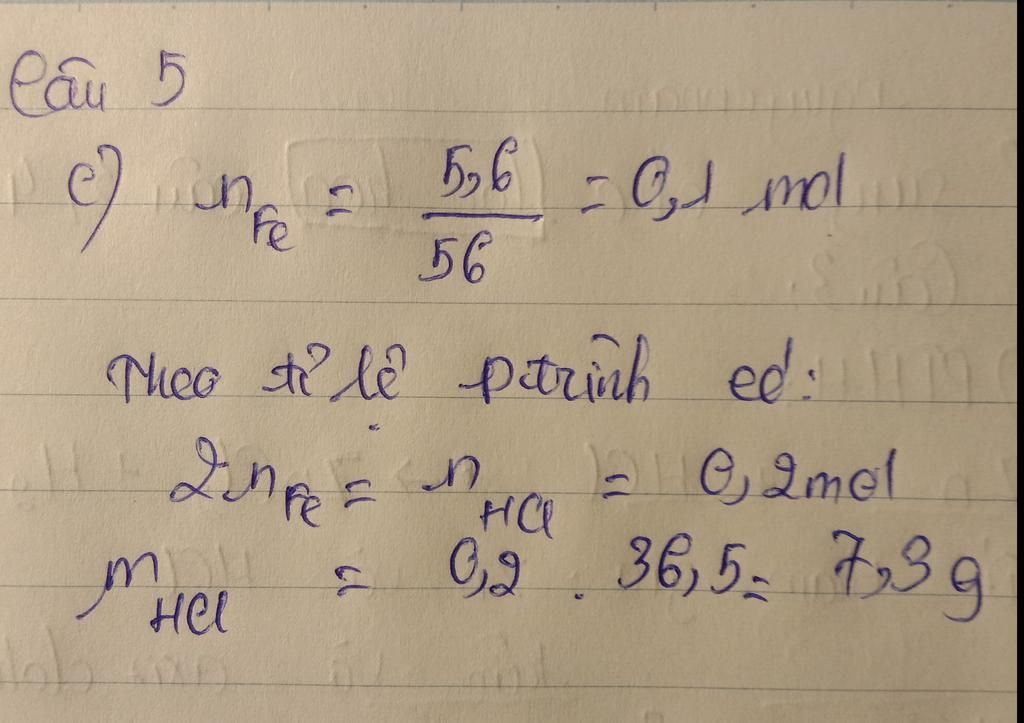 Câu 5
c) n Fe = 5,6 / 56 = 0,1 mol
Theo tỉ lệ ptrình có:
2n Fe = n HCl = 0,2mol
m HCl = 0,2 . 36,5 = 7,3 g